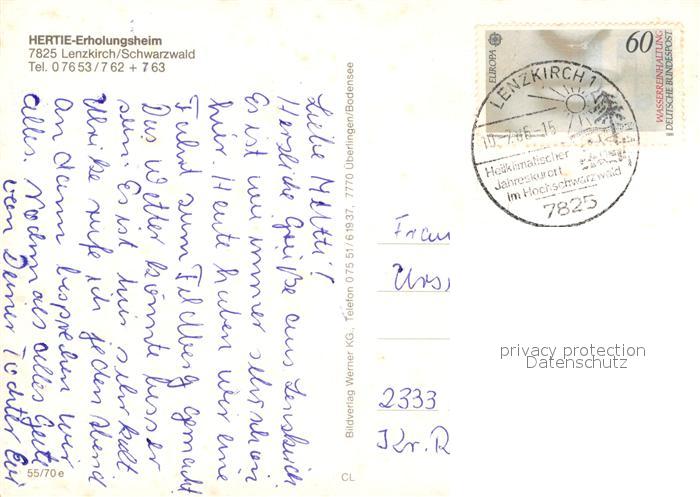 HERTIE-Erholungsheim
7825 Lenzkirch/Schwarzwald
Tel. 0 76 53 / 7 62 + 7 63
Liebe Mutti!
Herzliche Grüße aus Lenzkirch
Es ist wie immer sehr schön
hier. Heute haben wir eine
Fahrt zum Feldberg gemacht
Das Wetter könnte besser
sein. Es ist hier sehr kalt
Ulrike rufe ich jeden Abend
an dann besprechen wir
alles. Nochmals alles Gute
von Deiner Tochter
55/70 e
CL
Bildverlag Werner KG, Telefon 0 75 51 / 6 19 37, 77770 Überlingen/Bodensee
EUROPA
60
WASSERREINHALTUNG
DEUTSCHE BUNDESPOST
LENZKIRCH 1
Heilklimatischer
Jahreskurort
im Hochschwarzwald
7825
Frau
Urs
2333
Kr. R
privacy protection
Datenschutz